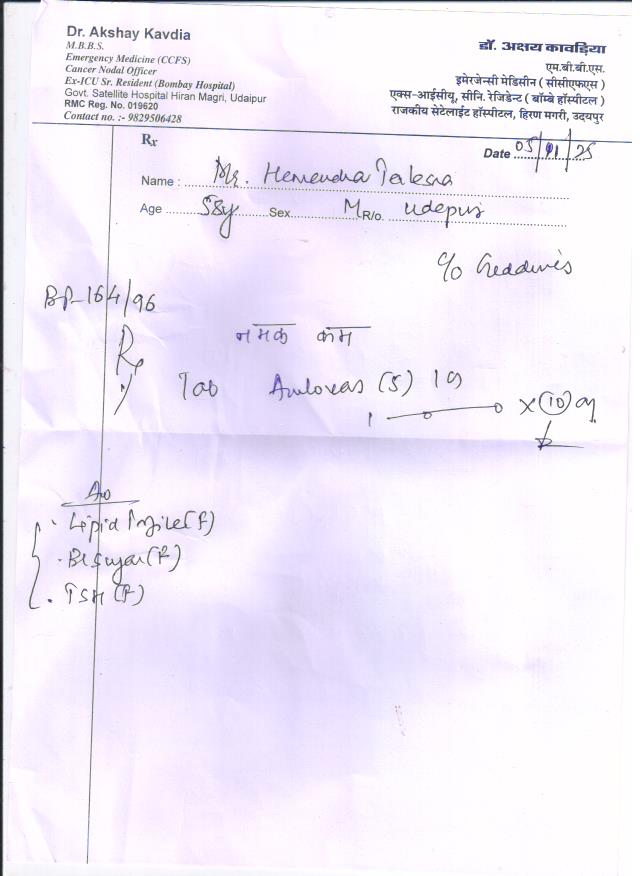 Dr. Akshay Kavdia
M.B.B.S.
Emergency Medicine (CCFS)
Cancer Nodal Officer
Ex-ICU Sr. Resident (Bombay Hospital)
Govt. Satellite Hospital Hiran Magri, Udaipur
RMC Reg. No. 019620
Contact no. :- 9829506428
डॉ. अक्षय कावड़िया
एम.बी.बी.एस.
इमेरजेन्सी मेडिसीन ( सीसीएफएस )
एक्स-आईसीयू, सीनि. रेजिडेन्ट ( बॉम्बे हॉस्पीटल )
राजकीय सेटेलाईट हॉस्पीटल, हिरण मगरी, उदयपुर
Rx
Date 05/01/25
Name : Mr. Hemendra
Age 58y Sex M R/o. Udepur
c/o
BP-164/96
नमक कम
Rx
1) Tab (5) 1 x (10)
1 - 0 - 0
Adv
. Lipid Profile (F)
. Bl Sugar (F)
. TSH (F)